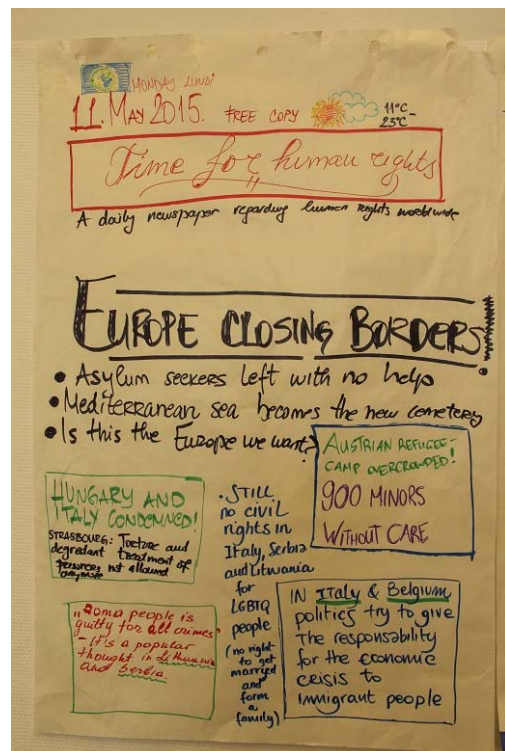 MONDAY LUNDI
11. MAY 2015. FREE COPY 11°C - 23°C
Time for human rights
A daily newspaper regarding human rights worldwide
EUROPE CLOSING BORDERS!
• Asylum seekers left with no help
• Mediterranean sea becomes the new cemetery
• Is this the Europe we want?
AUSTRIAN REFUGEE-
CAMP OVERCROWDED!
900 MINORS
WITHOUT CARE
HUNGARY AND
ITALY CONDEMNED!
STRASBOURG: Torture and
degradant treatment of
prisoners not allowed
anymore
• STILL
no civil
rights in
Italy, Serbia
and Lithuania
for
LGBTQ
people
(no right
to get
married
and
form
a
family)
"Roma people is
guilty for all crimes"
- It's a popular
thought in Lithuania
and Serbia.
IN Italy & Belgium
politics try to give
The responsability
for the economic
crisis to
immigrant people